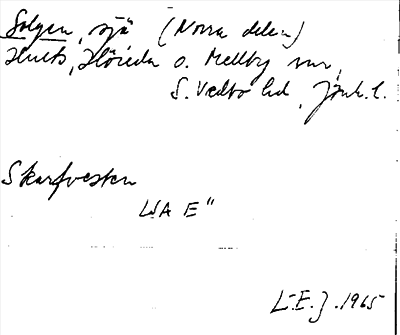 Solgen, sjö (Norra delen)
Hults, Höreda o. Mellby snr,
S. Vedbo hd, Jönk. l.
Skarfvesten
LSA E"
L.E.J. 1965